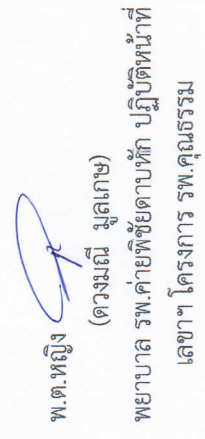 พ.ต.หญิง
(ดวงมณี มูลเกษ)
พยาบาล รพ.ค่ายพิชัยดาบหัก ปฏิบัติหน้าที่
เลขาฯ โครงการ รพ.คุณธรรม